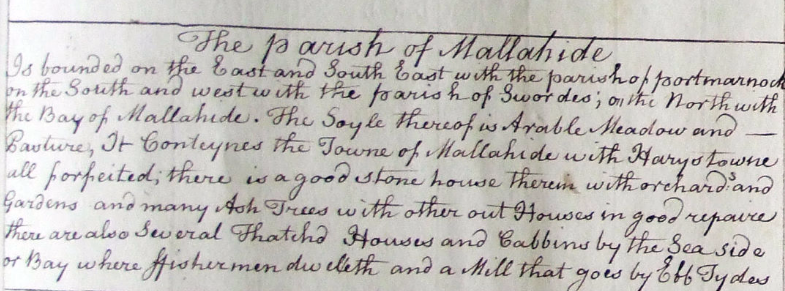 The parish of Mallahide
Is bounded on the East and South East with the parish of portmarnock
on the South and west with the parish of Swordes; on the North with
the Bay of Mallahide. The Soyle thereof is Arable Meadow and —
Pasture, It Conteynes the Towne of Mallahide with Harystowne
all forfeited; there is a good stone house therein with orchards and
Gardens and many Ash Trees with other out Houses in good repaire
there are also Several Thatchd Houses and Cabbins by the Sea side
or Bay where ffishermen dwelleth and a Mill that goes by Ebb Tydes